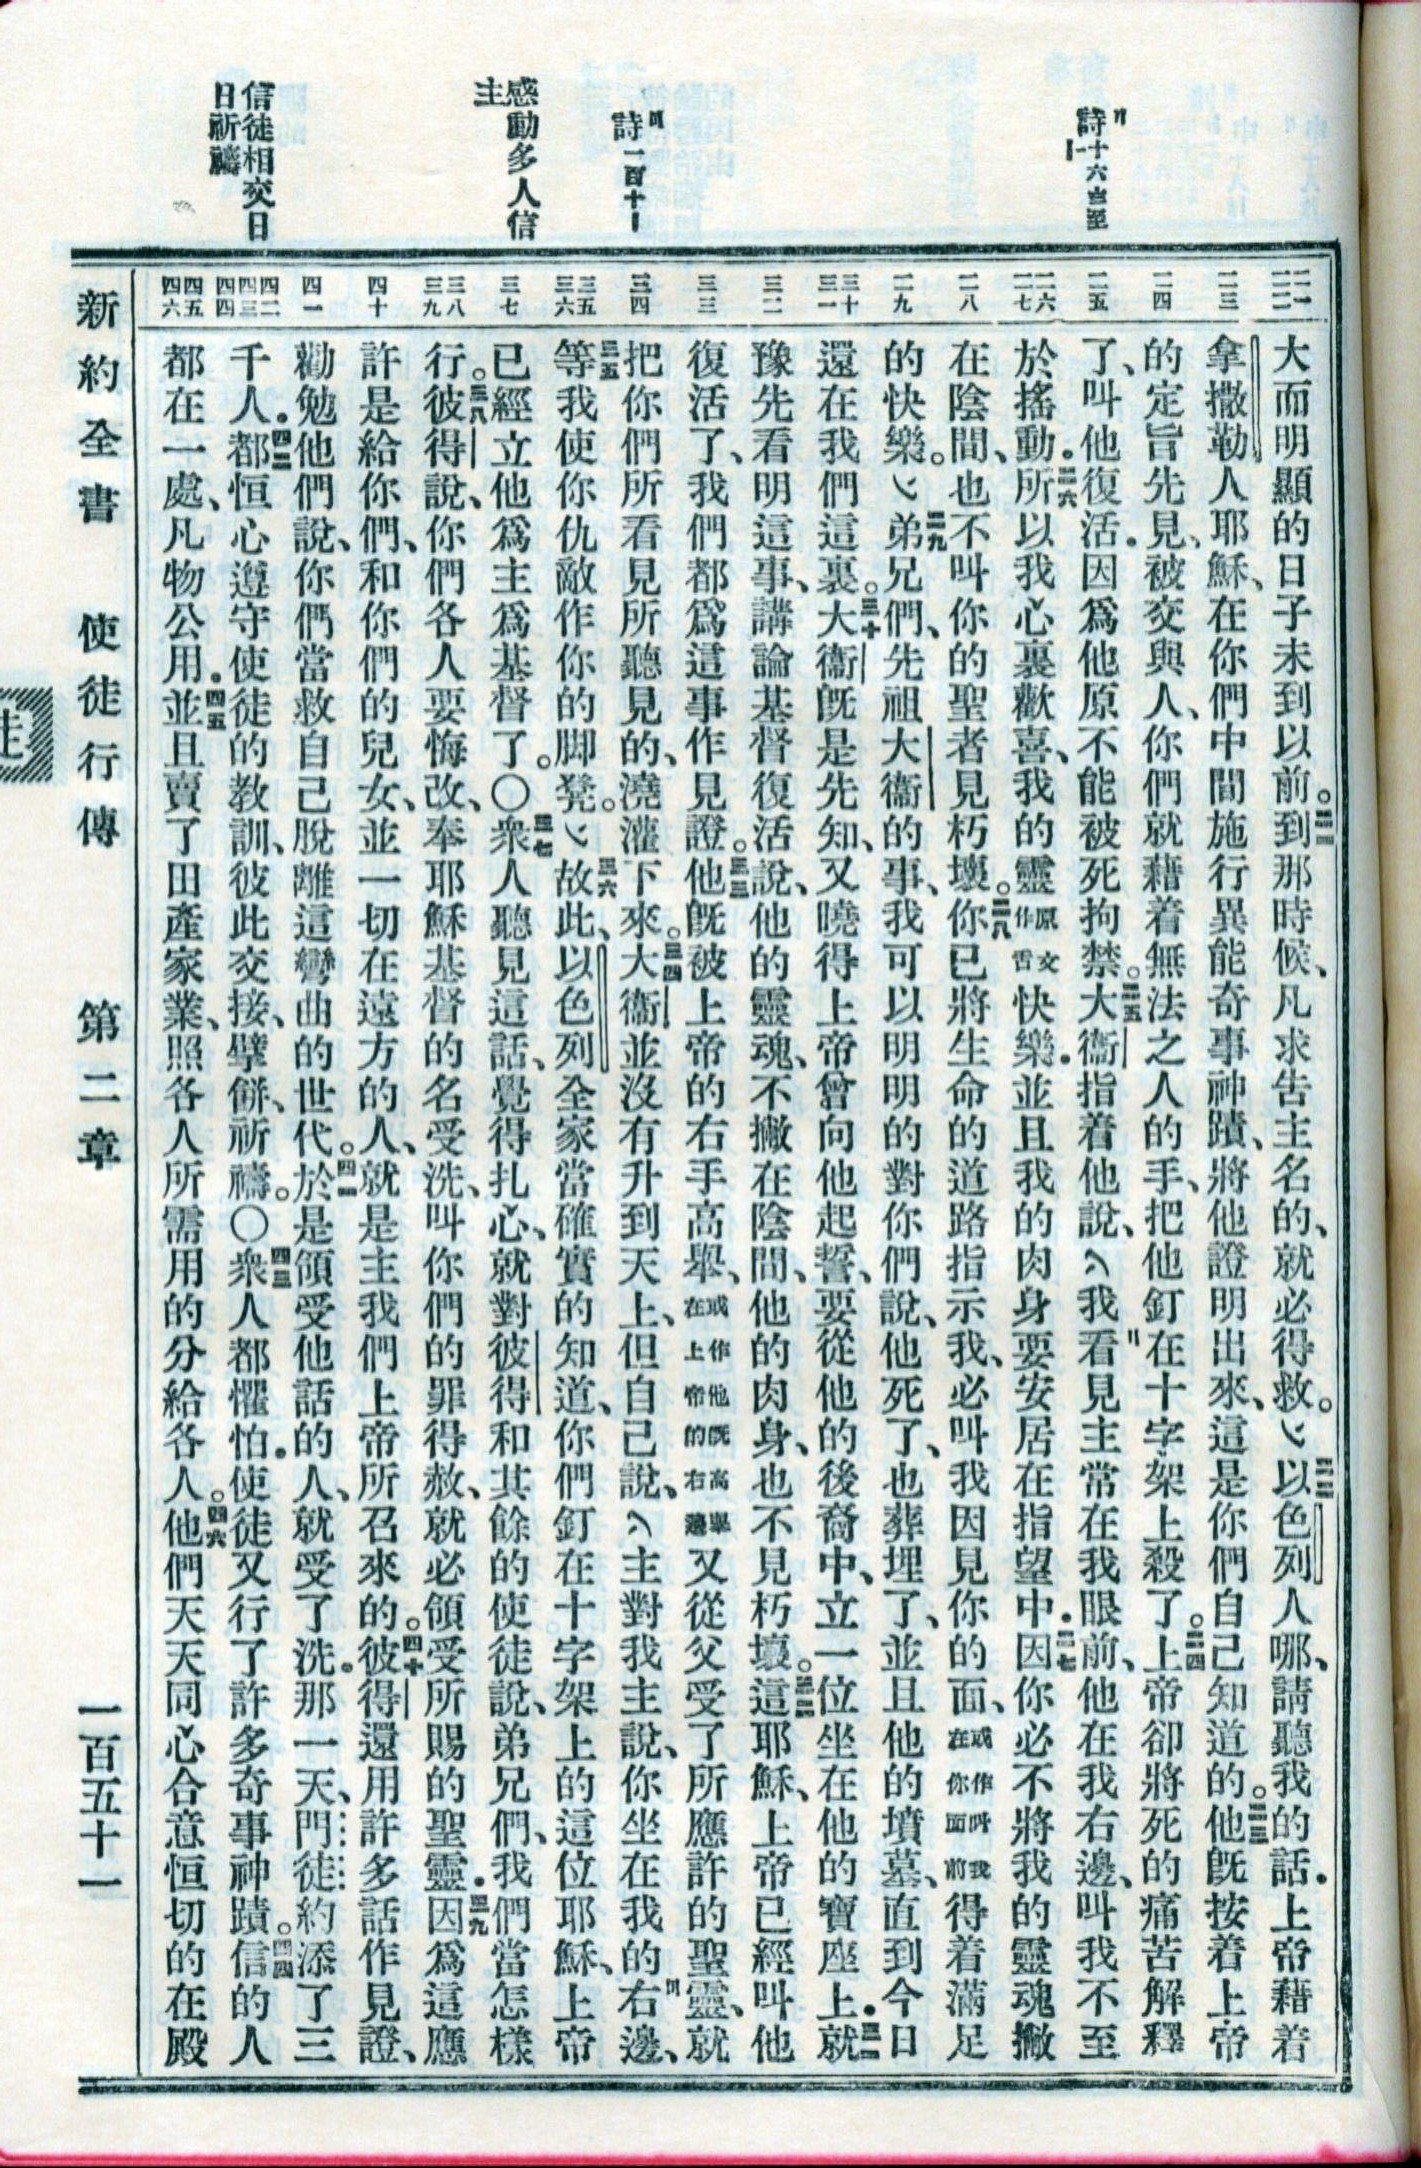 詩十六八至十一
詩一百十一
感動多人信
主
信徒相交日
日祈禱
二一 二二 二三 二四 二五 二六 二七 二八 二九 三十 三一 三二 三三 三四 三五 三六 三七 三八 三九 四十 四一 四二 四三 四四 四五 四六
大而明顯的日子未到以前。二一到那時候、凡求告主名的、就必得救。〵二二以色列人哪、請聽我的話．上帝藉着
拿撒勒人耶穌、在你們中間施行異能奇事神蹟、將他證明出來、這是你們自己知道的。二三他旣按着上帝
的定旨先見、被交與人、你們就藉着無法之人的手、把他釘在十字架上殺了。二四上帝卻將死的痛苦解釋
了、叫他復活．因爲他原不能被死拘禁。二五大衞指着他說、〳我看見主常在我眼前、他在我右邊、叫我不至
於搖動．二六所以我心裏歡喜、我的靈原文作舌快樂．並且我的肉身要安居在指望中．二七因你必不將我的靈魂撇
在陰間、也不叫你的聖者見朽壞。二八你已將生命的道路指示我、必叫我因見你的面、或作叫我在你面前得着滿足
的快樂。〵二九弟兄們、先祖大衞的事、我可以明明的對你們說、他死了、也葬埋了、並且他的墳墓、直到今日
還在我們這裏。三十大衞旣是先知、又曉得上帝曾向他起誓、要從他的後裔中、立一位坐在他的寶座上．三一就
豫先看明這事、講論基督復活說、他的靈魂、不撇在陰間、他的肉身、也不見朽壞。三二這耶穌、上帝已經叫他
復活了、我們都爲這事作見證。三三他旣被上帝的右手高舉、或作他旣高舉在上帝的右邊又從父受了所應許的聖靈、就
把你們所看見所聽見的、澆灌下來。三四大衞並沒有升到天上、但自己說、〳主對我主說、你坐在我的右邊、
三五等我使你仇敵作你的脚凳。〵三六故此、以色列全家當確實的知道、你們釘在十字架上的這位耶穌、上帝
已經立他爲主爲基督了。〇三七衆人聽見這話、覺得扎心、就對彼得和其餘的使徒說、弟兄們、我們當怎樣
行。三八彼得說、你們各人要悔改、奉耶穌基督的名受洗、叫你們的罪得赦、就必領受所賜的聖靈．三九因爲這應
許是給你們、和你們的兒女、並一切在遠方的人、就是主我們上帝所召來的。四十彼得還用許多話作見證、
勸勉他們說、你們當救自己脫離這彎曲的世代。四一於是領受他話的人、就受了洗．那一天、門徒約添了三
千人．四二都恒心遵守使徒的教訓、彼此交接、擘餅、祈禱。〇四三衆人都懼怕．使徒又行了許多奇事神蹟。四四信的人
都在一處、凡物公用．四五並且賣了田產家業、照各人所需用的分給各人。四六他們天天同心合意恒切的在殿
新約全書 使徒行傳 第二章 一百五十一
徒